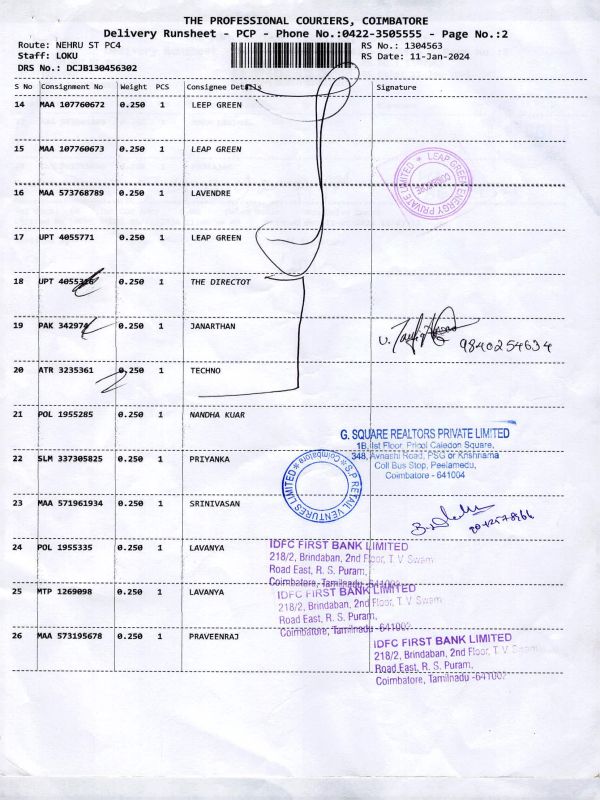 THE PROFESSIONAL COURIERS, COIMBATORE
Delivery Runsheet - PCP - Phone No.:0422-3505555 - Page No.:2
Route: NEHRU ST PC4
RS No.: 1304563
Staff: LOKU
RS Date: 11-Jan-2024
DRS No.: DCJB130456302
S No Consignment No Weight PCS Consignee Details Signature
14 MAA 107760672 0.250 1 LEEP GREEN
15 MAA 107760673 0.250 1 LEAP GREEN
LEAP GREEN ENERGY PRIVATE LIMITED
COIMBATORE
16 MAA 573768789 0.250 1 LAVENDRE
17 UPT 4055771 0.250 1 LEAP GREEN
18 UPT 0.250 1 THE DIRECTOT
19 PAK 0.250 1 JANARTHAN
9840254634
20 ATR 3235361 0.250 1 TECHNO
21 POL 1955285 0.250 1 NANDHA KUAR
G. SQUARE REALTORS PRIVATE LIMITED
1B, Ist Floor, Pricol Caledon Square,
348, Avnashi Road, PSG or Krishnama
Coll Bus Stop, Peelamedu,
Coimbatore - 641004
22 SLM 337305825 0.250 1 PRIYANKA
S.P RETAIL VENTURES LIMITED
Coimbatore
23 MAA 571961934 0.250 1 SRINIVASAN
24 POL 1955335 0.250 1 LAVANYA
IDFC FIRST BANK LIMITED
218/2, Brindaban, 2nd Floor, T. V Swam
Road East, R. S. Puram,
Coimbatore, Tamilnadu -641002
25 MTP 1269098 0.250 1 LAVANYA
IDFC FIRST BANK LIMITED
218/2, Brindaban, 2nd Floor, T. V Swam
Road East, R. S. Puram,
Coimbatore, Tamilnadu -641002
26 MAA 573195678 0.250 1 PRAVEENRAJ
IDFC FIRST BANK LIMITED
218/2, Brindaban, 2nd Floor, T. V Swam
Road East, R. S. Puram,
Coimbatore, Tamilnadu -641002